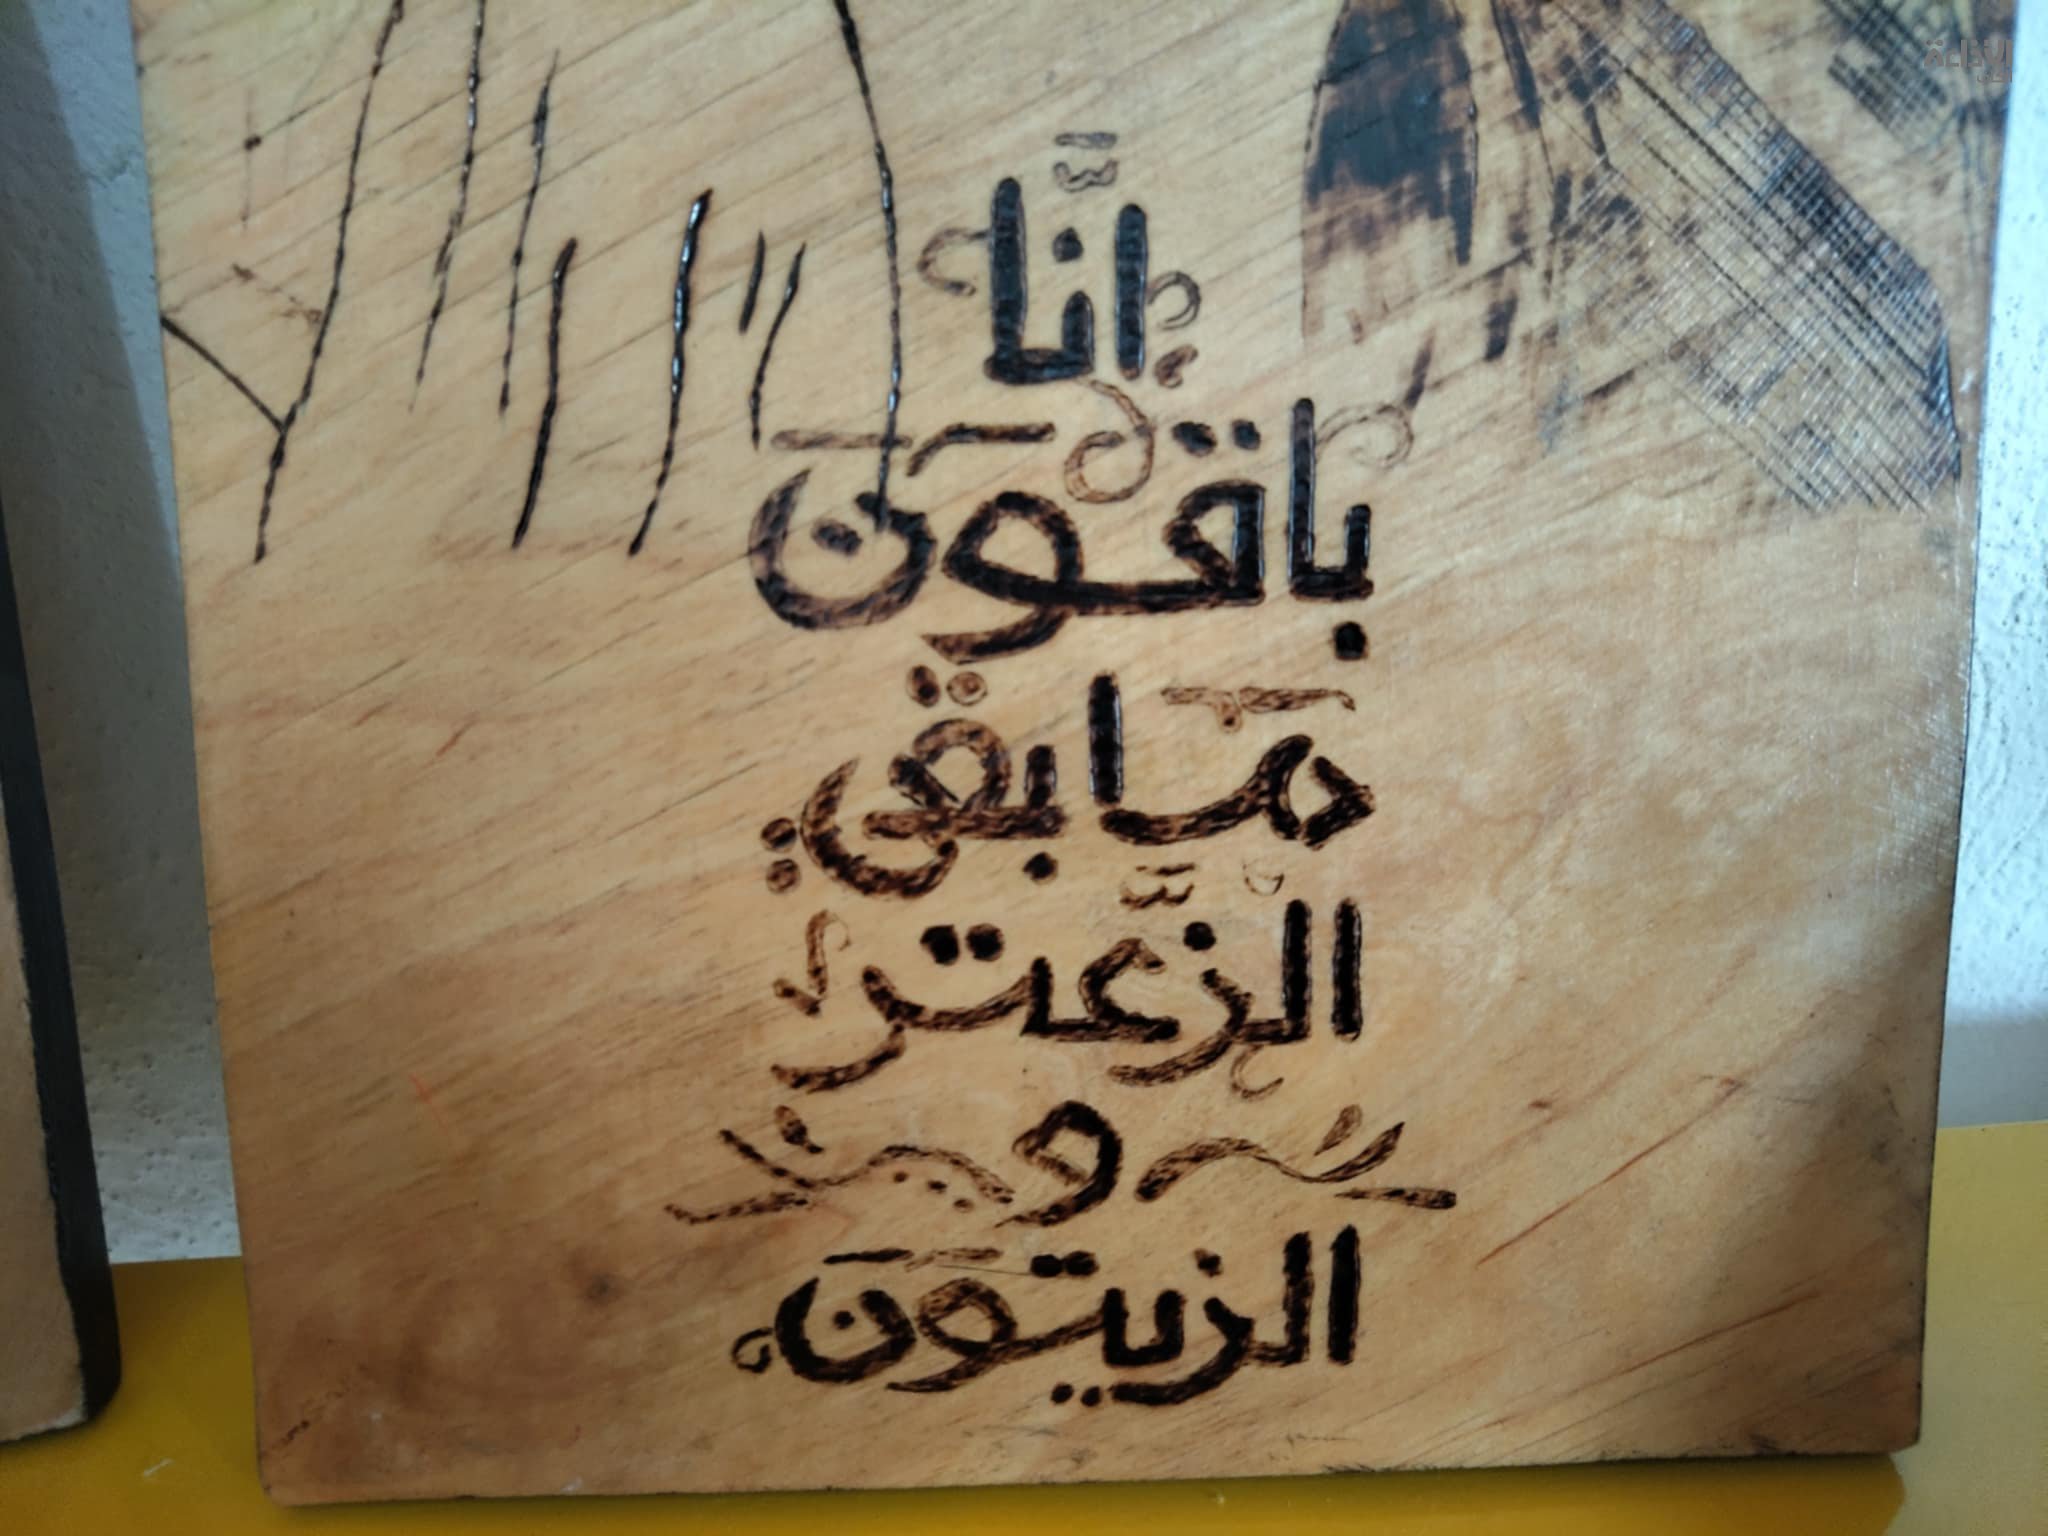 انَّا
باقَون
مَا بقي
الزَّعتر
و
الزيتَون